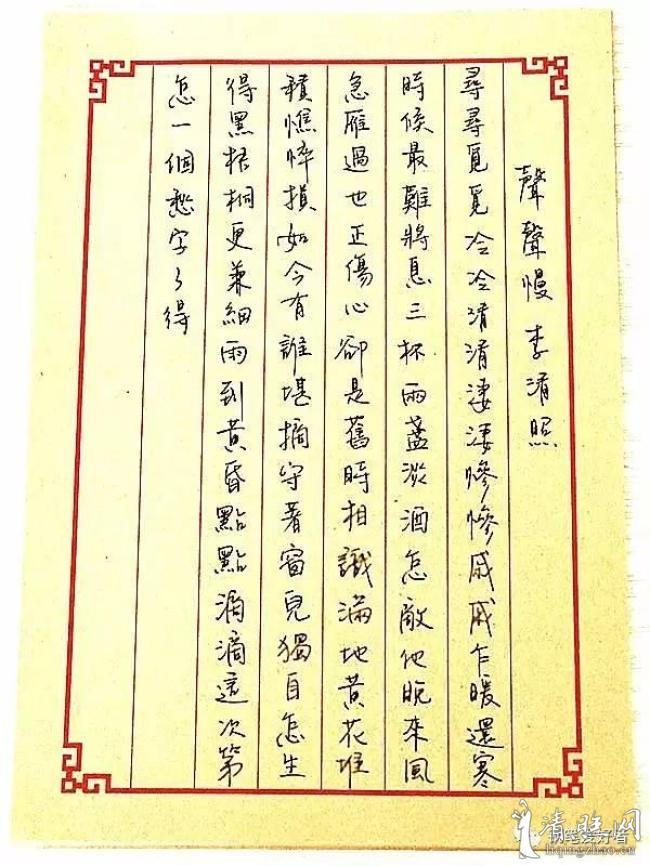 聲聲慢 李清照
尋尋覓覓冷冷清清淒淒慘慘戚戚乍暖還寒
時候最難將息三杯兩盞淡酒怎敵他晚來風
急雁過也正傷心卻是舊時相識滿地黃花堆
積憔悴損如今有誰堪摘守著窗兒獨自怎生
得黑梧桐更兼細雨到黃昏點點滴滴這次第
怎一個愁字了得
清照网
钢笔爱好者